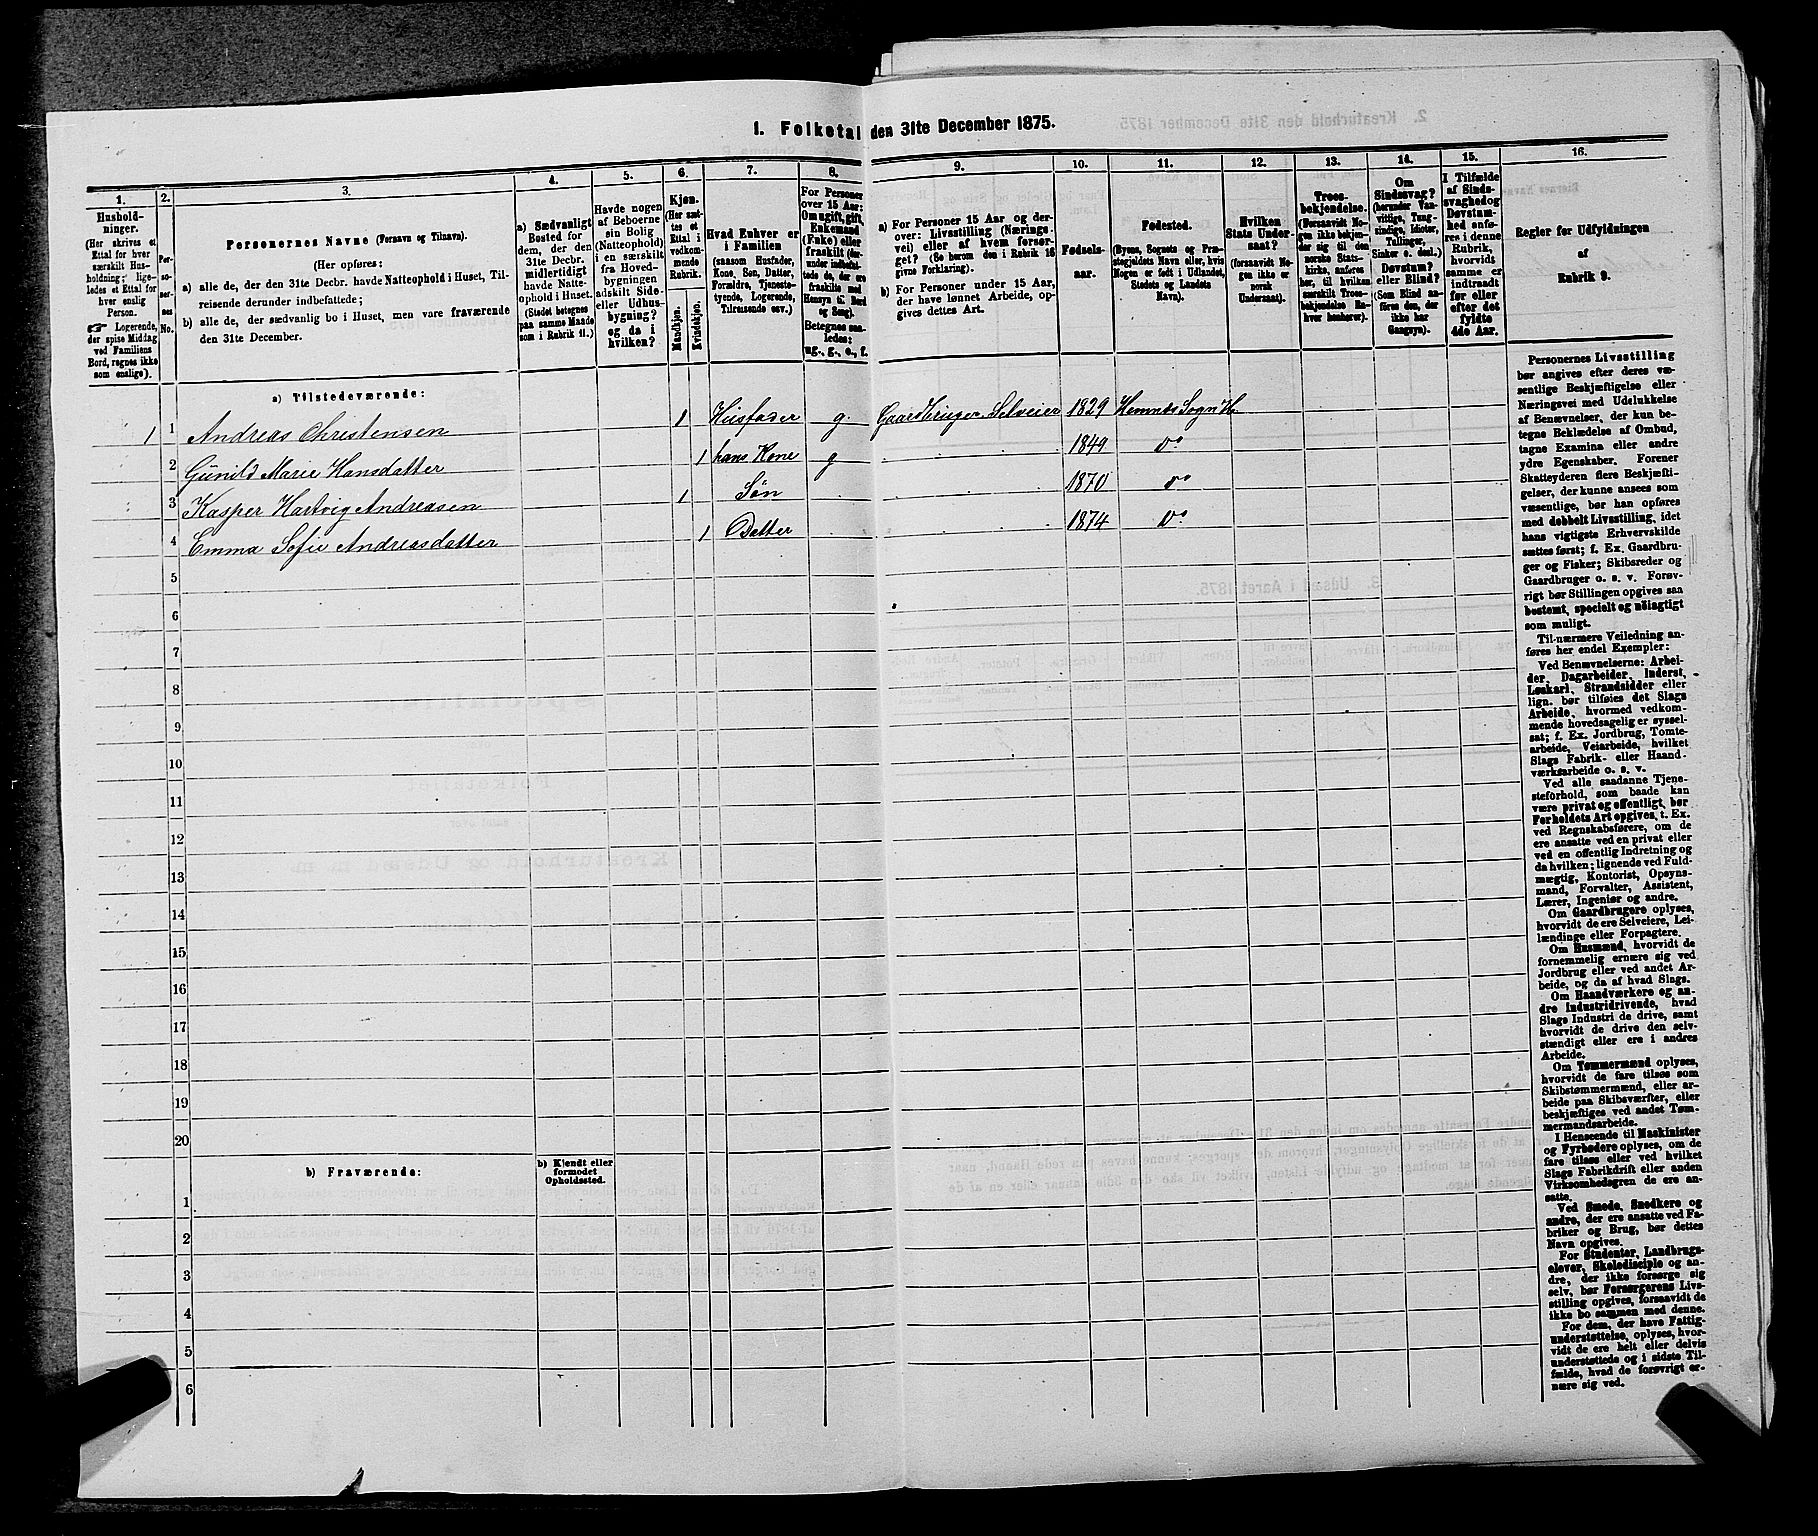 I. Folketal den 31te December 1875.
1. 2. 3. 4. 5. 6. 7. 8. 9. 10. 11. 12. 13. 14. 15. 16.
Hushold-
ninger.
(Her skrives et
Ettal for hver
særskilt Hus-
holdning; lige-
ledes et Ettal for
hver enslig
Person.
☞ Logerende,
der spise Middag
ved Familiens
Bord, regnes ikke
som enslige).
Per-
so-
ner-
nes
No.
Personernes Navne (Fornavn og Tilnavn).
(Her opføres:
a) alle de, der den 31te Decbr. havde Natteophold i Huset, Til-
reisende derunder indbefattede;
b) alle de, der sædvanlig bo i Huset, men vare fraværende
den 31te December.
a) Sædvanligt
Bosted for
dem, der den
31te Decbr.
midlertidigt
havde Natte-
ophold i Huset.
(Stedet betegnes
paa samme Maade
som i Rubrik 11.)
Havde nogen
af Beboerne
sin Bolig
(Natteophold)
i en særskilt
fra Hoved-
bygningen
adskilt Side-
eller Udhus-
bygning?
og da i
hvilken?
Kjøn.
(Her sæt-
tes et
Ettal i
vedkom-
mende
Rubrik.
Mandkjøn.
Kvindekjøn.
Hvad Enhver er
i Familien
(saasom Husfader,
Kone, Søn, Datter,
Forældre, Tjeneste-
tyende, Logerende,
Tilreisende osv.)
For Personer
over 15 Aar:
Om ugift, gift,
Enkemand
(Enke) eller
fraskilt (der-
under indbefat-
tede de, der ere
fraskilte med
Hensyn til Bord
og Seng).
Betegnes saa-
ledes:
ug., g., e., f.
a) For Personer 15 Aar og der-
over: Livsstilling (Nærings-
vei) eller af hvem forsør-
get? (Se herom den i Rubrik 16
givne Forklaring).
b) For Personer under 15 Aar,
der have lønnet Arbeide, op-
gives dettes Art.
Fødsels-
aar.
Fødested.
(Byens, Sognets og Præ-
stegjeldets Navn eller, hvis
Nogen er født i Udlandet,
Stedets og Landets
Navn).
Hvilken
Stats Under-
saat?
(forsaavidt No-
gen ikke er
norsk
Undersaat).
Troes-
bekjendelse.
(Forsaavidt No-
gen ikke bekjen-
der sig til den
norske Stats-
kirke, anføres
her, til hvilken
særskilt Troes-
bekjendelse En-
hver henhører).
Om
Sindssvag?
(herunder Van-
vittige, Tung-
sindige, Idioter,
Tullinger,
Sinker o. desl.)
Døvstum?
eller Blind?
(Som Blind an-
føres den, der
ikke har
Gangsyn).
I Tilfælde
af Sinds-
svaghed og
Døvstum-
hed anfø-
res i denne
Rubrik,
hvorvidt
samme er
indtraadt
før eller
efter det
fyldte
4de Aar.
Regler for Udfyldningen
af
Rubrik 9.
a) Tilstedeværende:
1 1 Andreas Christensen 1 Husfader g. Gaardbruger Selveier 1829 Hemnes Sogn H
2 Gunild Marie Hansdatter 1 hans Kone g 1849 do
3 Kasper Hartvig Andreasen 1 Søn 1870 do
4 Emma Sofie Andreasdatter 1 Datter 1874 do
5
6
7
8
9
10
11
12
13
14
15
16
17
18
19
20
b) Fraværende: b) Kjendt eller
formodet
Opholdssted.
1
2
3
4
5
6
Personernes Livsstilling
bør angives efter deres væ-
sentlige Beskjæftigelse eller
Næringsvei med Udelukkelse
af Benævnelser, der kun be-
tegne Beklædelse af Ombud,
tagne Examina eller andre
ydre Egenskaber. Forener
Skatteyderen flere Beskjæfti-
gelser, der kunne ansees som
væsentlige, bør han opføres
med dobbelt Livsstilling, idet
hans vigtigste Erhvervskilde
sættes først; f. Ex. Gaardbru-
ger og Fisker; Skibsreder og
Gaardbruger o. s. v. Forøv-
rigt bør Stillingen opgives saa
bestemt, specielt og nöiagtigt
som muligt.
Til nærmere Veiledning an-
føres her endel Exempler:
Ved Benævnelserne: Arbei-
der, Dagarbeider, Inderst,
Løskarl, Strandsidder eller
lign. bør tilføies det Slags
Arbeide, hvormed vedkom-
mende hovedsagelig er syssel-
sat; f. Ex. Jordbrug, Tomte-
arbeide, Veiarbeide, hvilket
Slags Fabrik- eller Haand-
værksarbeide o. s. v.
Ved alle saadanne Tjene-
steforhold, som baade kan
være privat og offentligt, bør
Forholdets Art opgives, t. Ex.
ved Regnskabsførere, om de
ere ansatte ved en privat eller
ved en offentlig Indretning og
da hvilken; lignende ved Fuld-
mægtig, Kontorist, Opsyns-
mand, Forvalter, Assistent,
Lærer, Ingeniør og andre.
Om Gaardbrugere oplyses,
hvorvidt de ere Selveiere, Lei-
lændinge eller Forpagtere.
Om Husmænd, hvorvidt de
fornemmelig ernære sig ved
Jordbrug eller ved andet Ar-
beide, og da af hvad Slags.
Om Haandværkere og an-
dre Industridrivende, hvad
Slags Industri de drive, samt
hvorvidt de drive den selv-
stændigt eller ere i andres
Arbeide.
Om Tømmermænd oplyses,
hvorvidt de fare tilsøs som
Skibstømmermænd, eller ar-
beide paa Skibsværfter, eller
beskjæftiges ved andet Tøm-
mermandsarbeide.
I Henseende til Maskinister
og Fyrbødere oplyses, om de
fare tilsøs eller ved hvilket
Slags Fabrikdrift eller anden
Virksomhedsgren de ere an-
satte.
Ved Smede, Snedkere og
andre, der ere ansatte ved Fa-
briker og Brug, bør dettes
Navn opgives.
For Studenter, Landbrugs-
elever, Skoledisciple og an-
dre, der ikke forsørge sig
selv, bør Forsørgerens Livs-
stilling opgives, forsaavidt de
ikke bo sammen med denne.
For dem, der have Fattig-
understøttelse, oplyses, hvor-
vidt de ere helt eller delvis
understøttede og i sidste Til-
fælde, hvad de forøvrigt er-
nære sig ved.